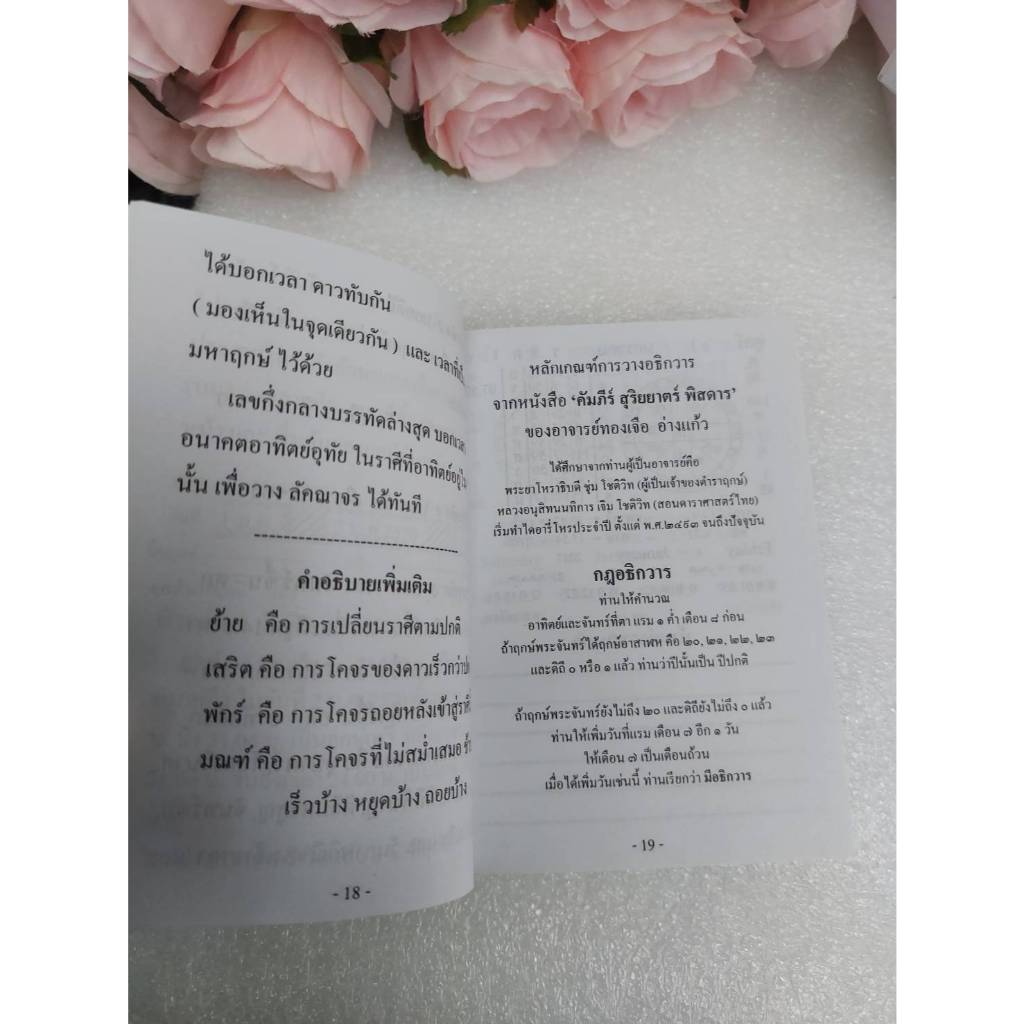 ได้บอกเวลา ดาวทับกัน
( มองเห็นในจุดเดียวกัน ) และ
มหาฤกษ์ ไว้ด้วย
เลขกึ่งกลางบรรทัดล่างสุด
อนาคตอาทิตย์อุทัย ในราศีที่อาทิตย์
นั้น เพื่อวาง ลัคณาจร ได้ทันที
คำอธิบายเพิ่มเติม
ย้าย คือ การเปลี่ยนราศีตามปกติ
เสริต คือ การโคจรของดาวเร็วกว่า
พักร์ คือ การโคจรถอยหลังเข้าสู่
มณฑ์ คือ การโคจรที่ไม่สม่ำเสมอ
เร็วบ้าง หยุดบ้าง ถอยบ้าง
- 18 -
หลักเกณฑ์การวางอธิกวาร
จากหนังสือ ‘คัมภีร์ สุริยยาตร์ พิสดาร’
ของอาจารย์ทองเจือ อ่างแก้ว
ได้ศึกษาจากท่านผู้เป็นอาจารย์คือ
พระยาโหราธิบดี ชุ่ม โชติวิท (ผู้เป็นเจ้าของตำราฤกษ์)
หลวงอนุสิทนนทิการ เจิม โชติวิท (สอนดาราศาสตร์ไทย)
เริ่มทำไดอารี่โหรประจำปี ตั้งแต่ พ.ศ.๒๔๙๓ จนถึงปัจจุบัน
กฎอธิกวาร
ท่านให้คำนวณ
อาทิตย์และจันทร์ที่ตา แรม ๑ ค่ำ เดือน ๘ ก่อน
ถ้าฤกษ์พระจันทร์ได้ฤกษ์อาสาพห คือ ๒๐, ๒๑, ๒๒, ๒๓
และดิถี ๐ หรือ ๑ แล้ว ท่านว่าปีนั้นเป็น ปีปกติ
ถ้าฤกษ์พระจันทร์ยังไม่ถึง ๒๐ และดิถียังไม่ถึง ๐ แล้ว
ท่านให้เพิ่มวันที่แรม เดือน ๗ อีก ๑ วัน
ให้เดือน ๗ เป็นเดือนถ้วน
เมื่อได้เพิ่มวันเช่นนี้ ท่านเรียกว่า มีอธิกวาร
- 19 -